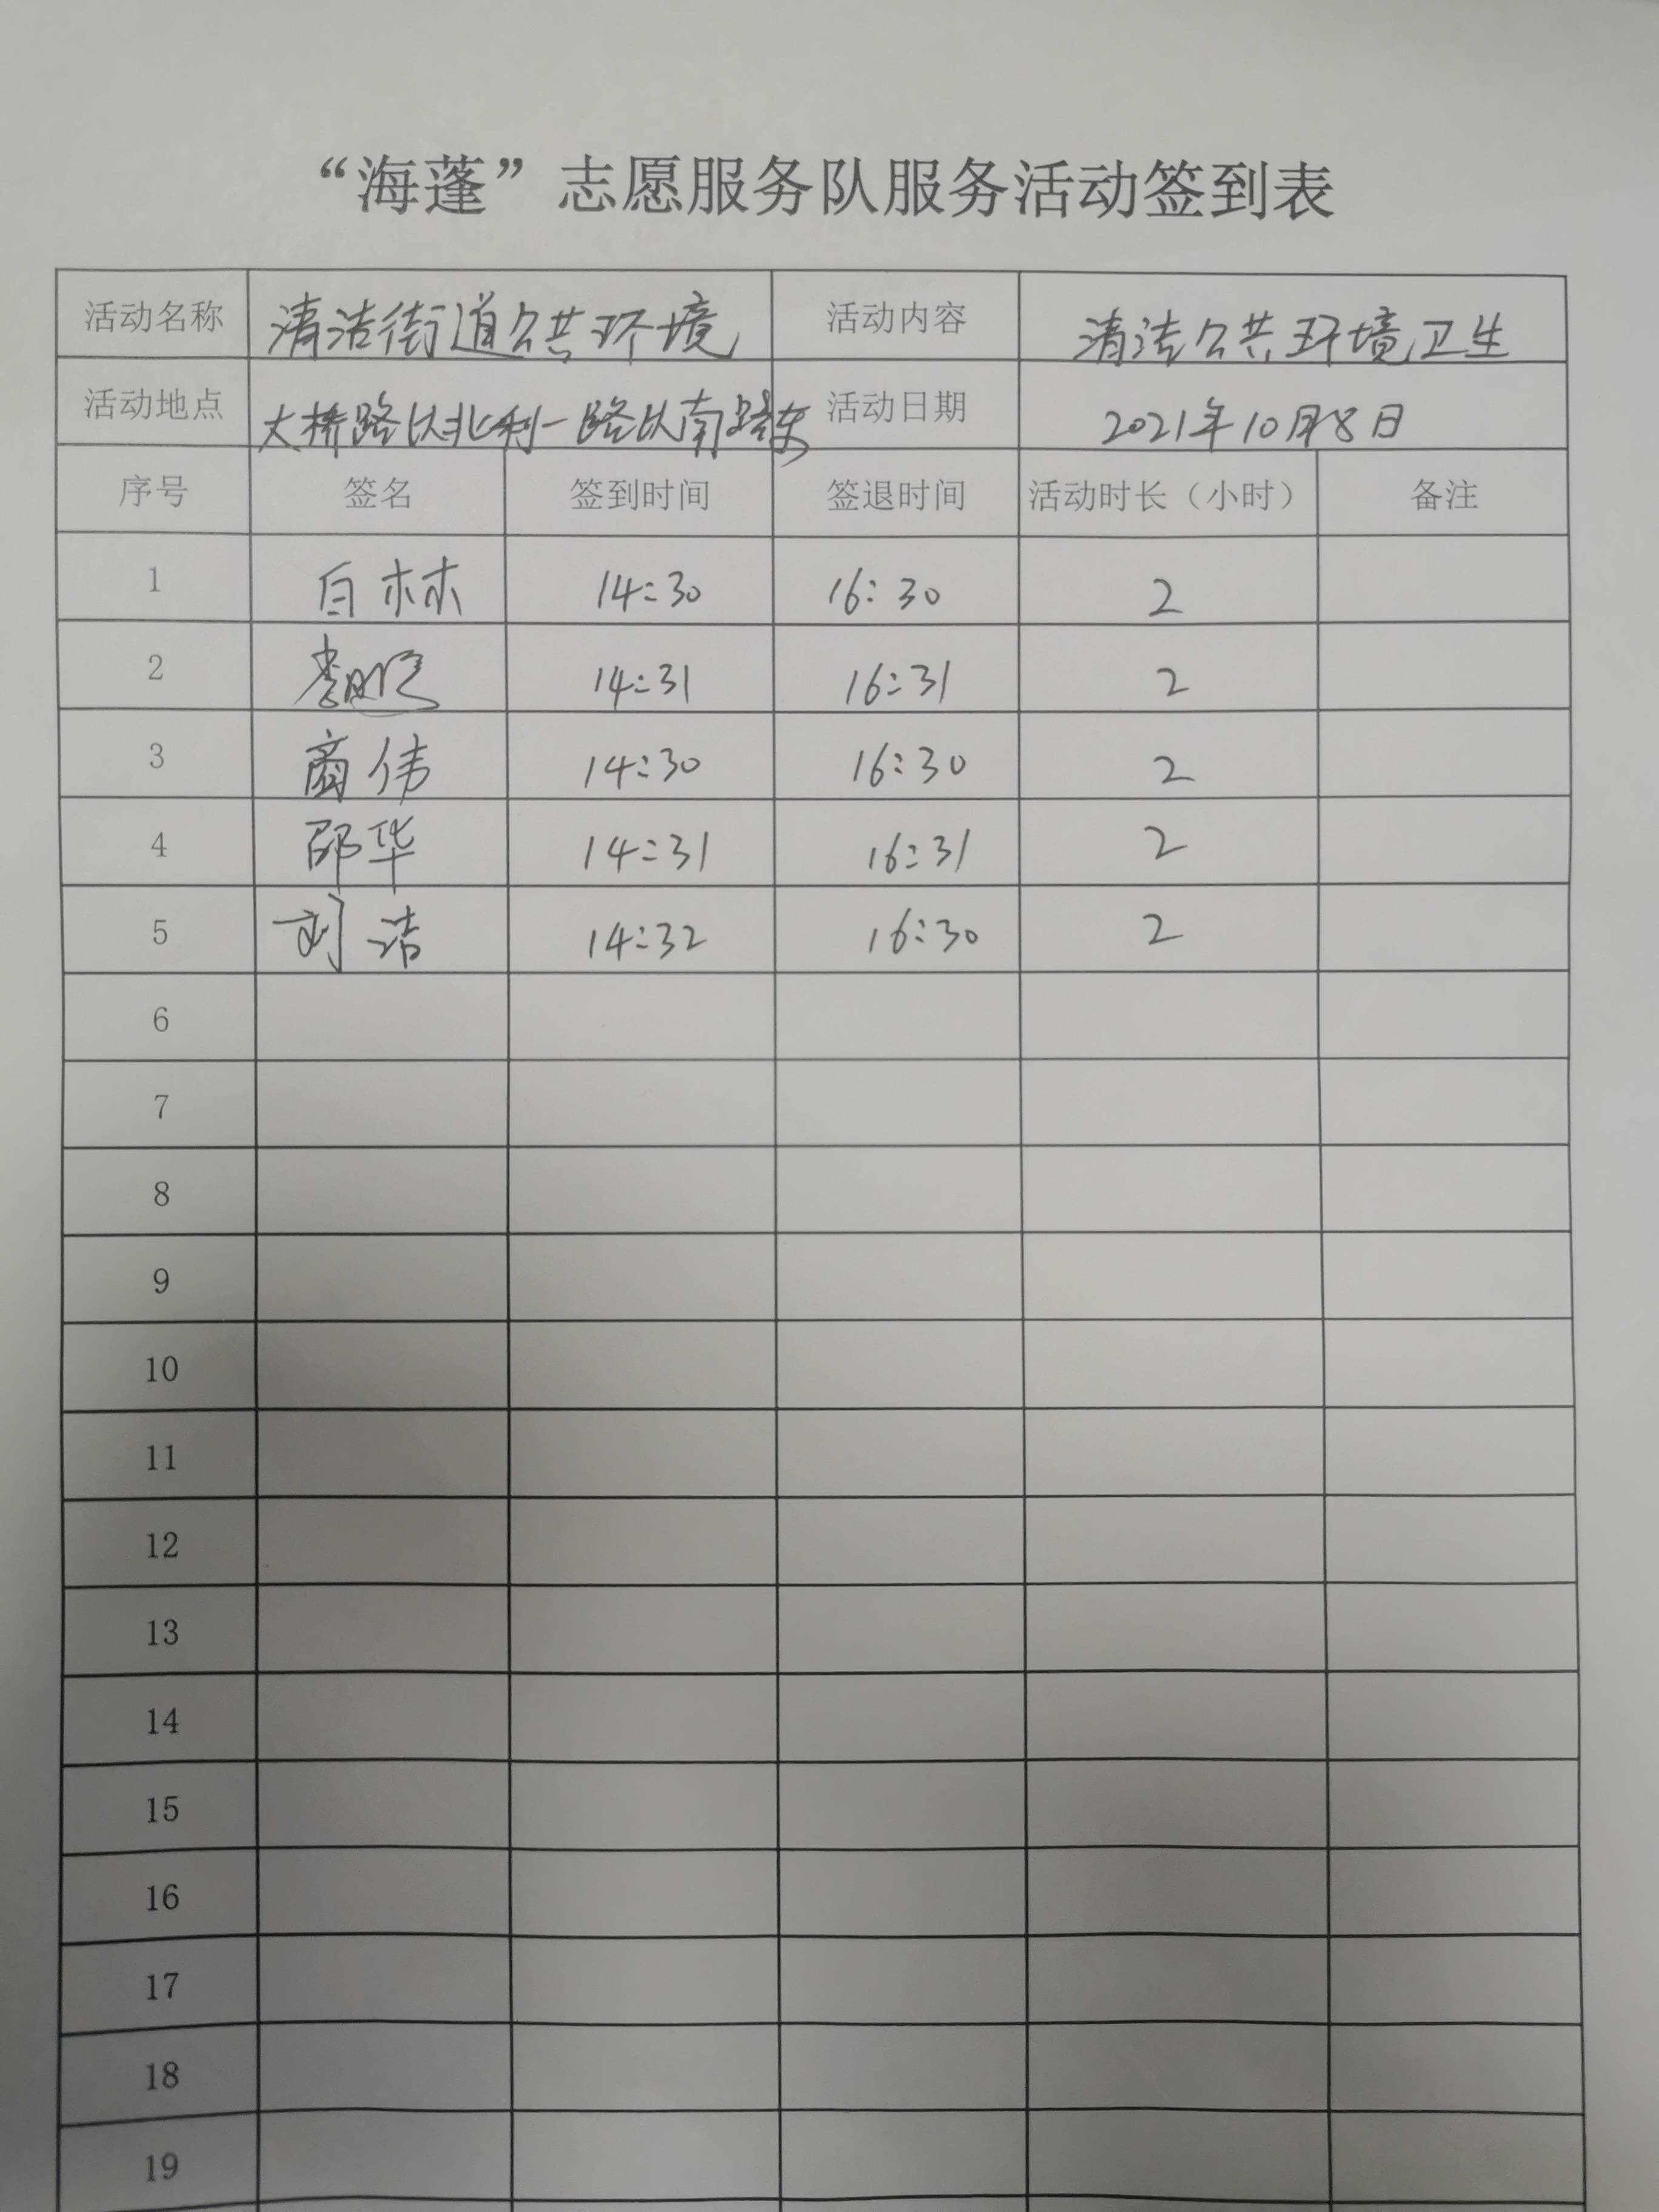 “海蓬”志愿服务队服务活动签到表
活动名称 清洁街道公共环境 活动内容 清洁公共环境卫生
活动地点 大桥路以北利一路以南路东 活动日期 2021年10月8日
序号 签名 签到时间 签退时间 活动时长（小时） 备注
1 白林 14:30 16:30 2
2 14:31 16:31 2
3 商伟 14:30 16:30 2
4 邵华 14:31 16:31 2
5 刘洁 14:32 16:30 2
6
7
8
9
10
11
12
13
14
15
16
17
18
19